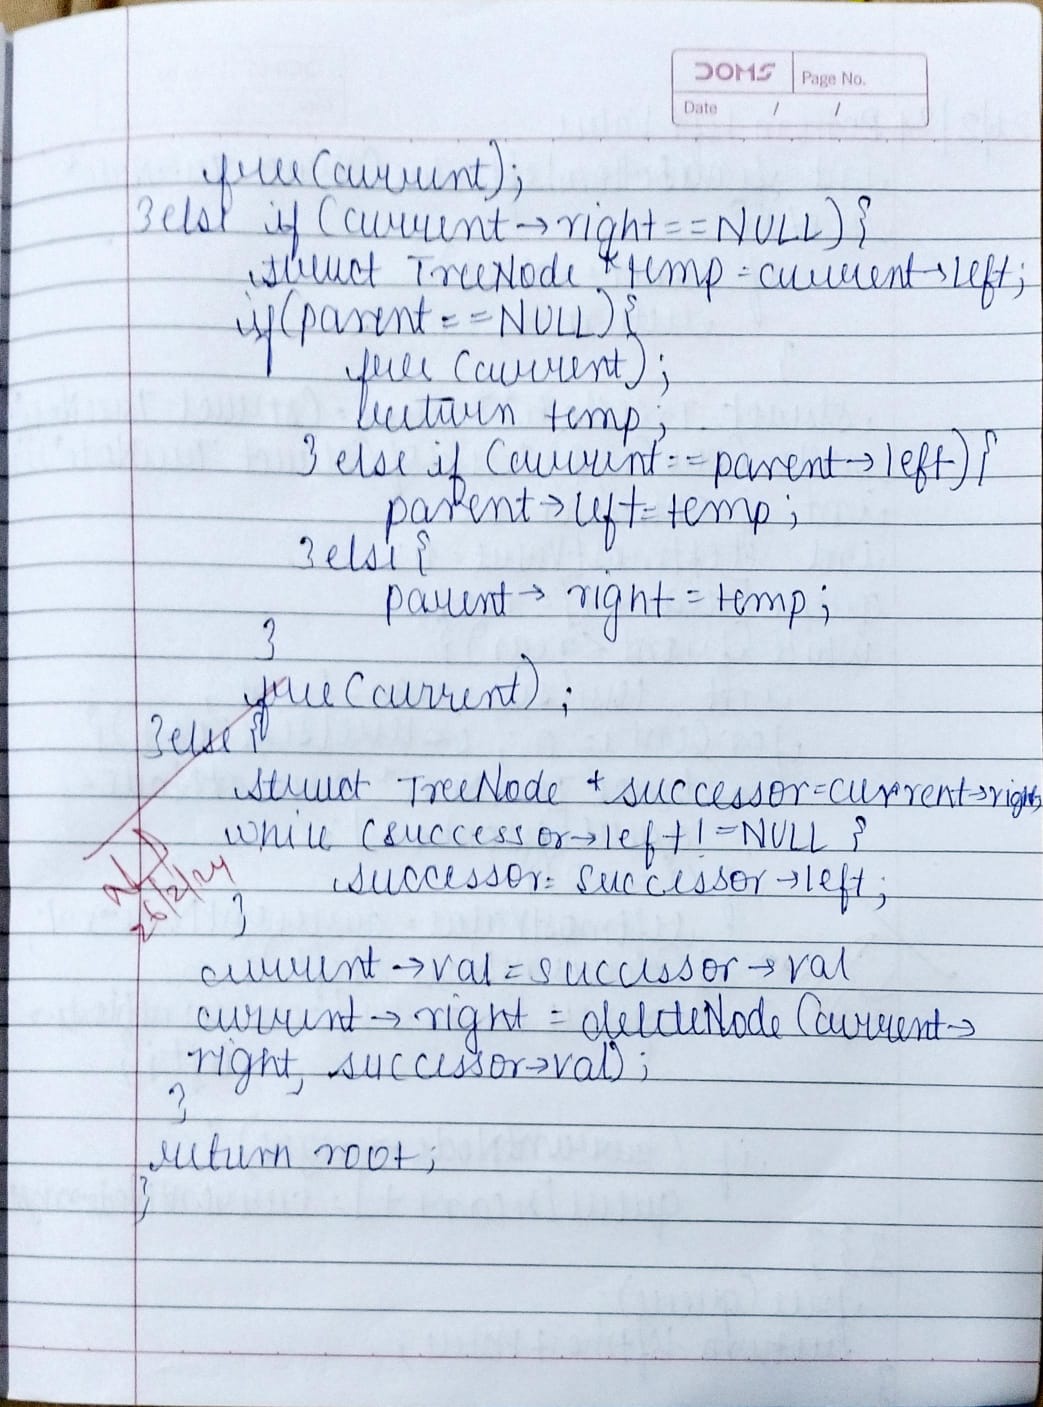 DOMS
Page No.
Date / /
free(current);
}else if (current→right==NULL){
struct TreeNode *temp=current→left;
if(parent==NULL){
free(current);
return temp;
}else if (current==parent→left){
parent→left=temp;
}else{
parent→right=temp;
}
free(current);
}else{
struct TreeNode *successor=current→right;
while (successor→left!=NULL{
successor=successor→left;
}
current→val=successor→val
current→right=deleteNode(current→
right, successor→val);
}
return root;
}
26/2/24